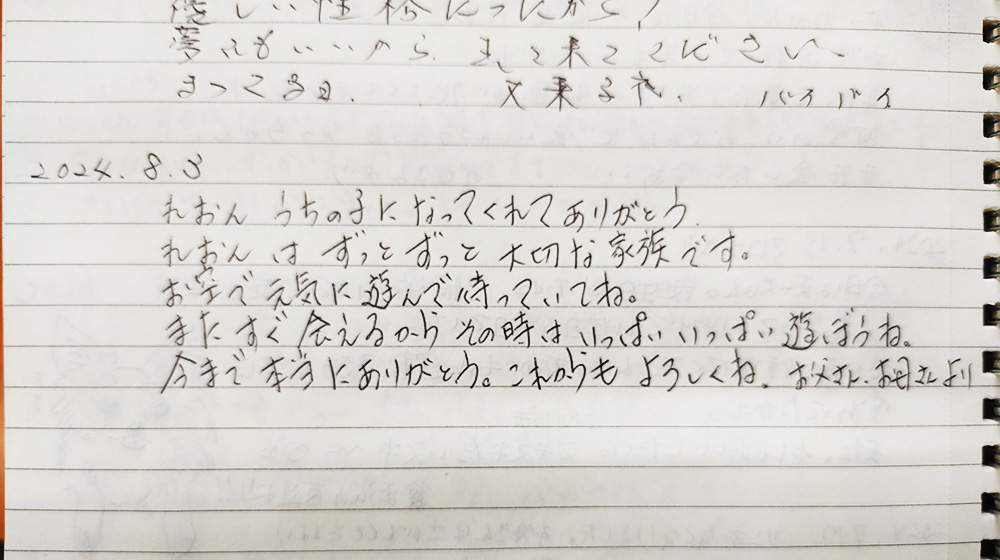 優しい性格だったから!
夢でもいいから、また来てください。
まってる日。 又来る礼。 バイバイ
2024.8.3
れおん うちの子になってくれてありがとう。
れおんは ずっとずっと 大切な家族です。
お空で元気に遊んで待っていてね。
またすぐ会えるからその時はいっぱいいっぱい遊ぼうね。
今まで本当にありがとう。これからもよろしくね。お父さん、お母さんより